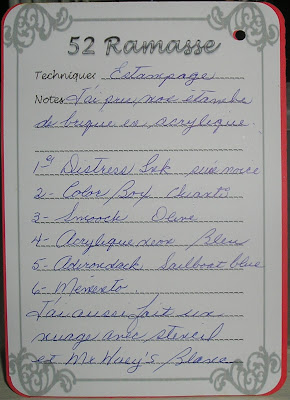 52 Ramasse
Technique: Estampage
Notes: J'ai pris nos étambe
de bique en acrylique.
1- Distress Ink suie noire
2- Color Box Chianti
3- Smooch Olive
4- Acrylique neon Bleu
5- Adirondack Sailboat blue
6- Memento
J'ai aussi fait un
nuage avec stencil
et Mr Huey's Blanc